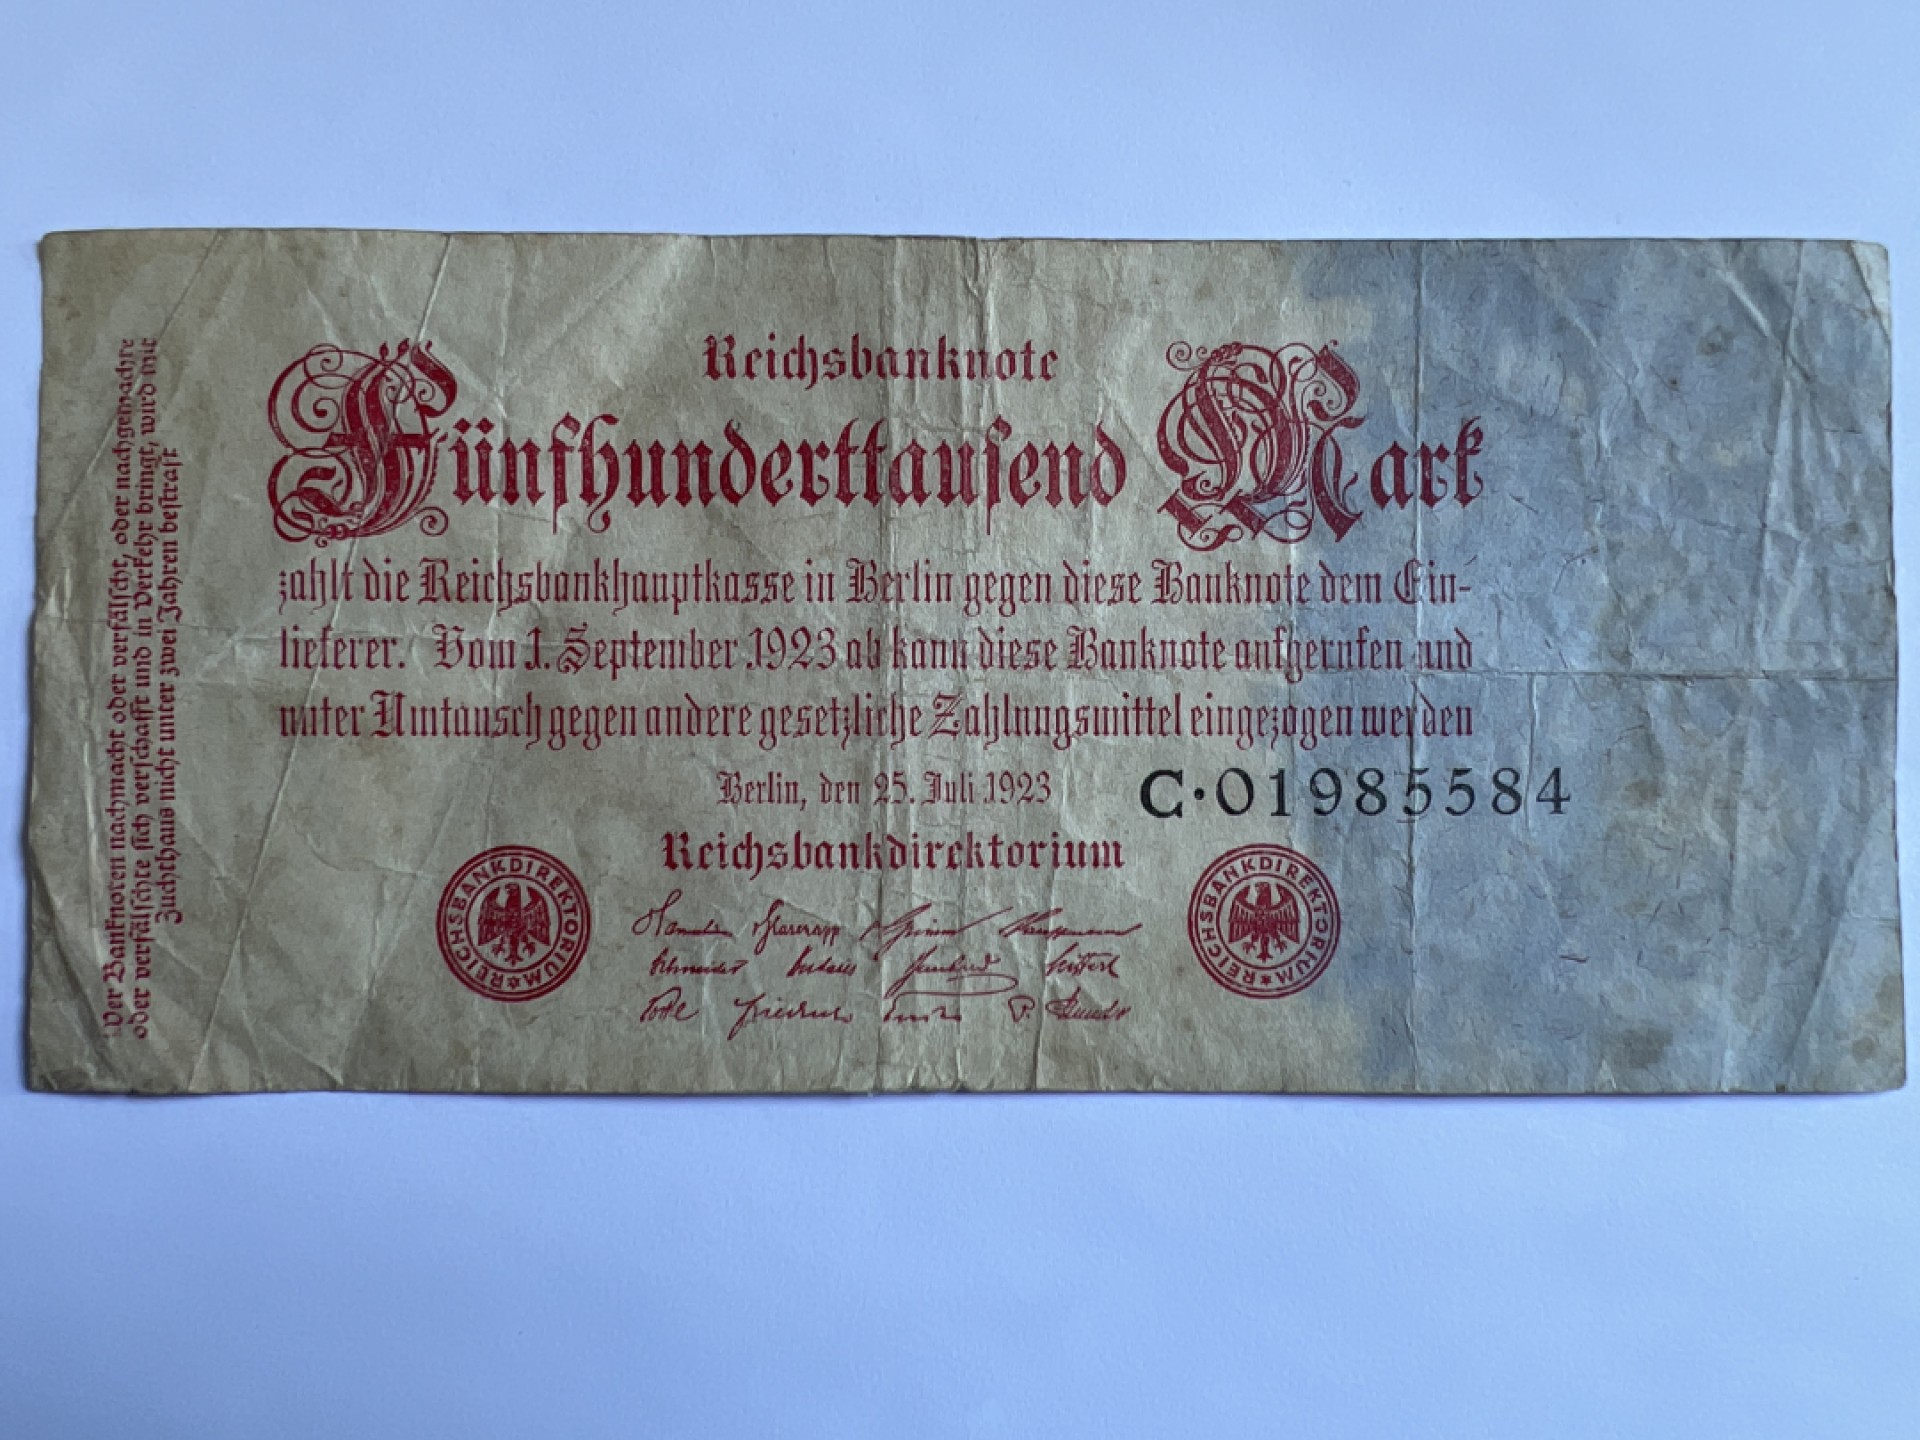 Reichsbanknote
Fünfhunderttausend Mark
zahlt die Reichsbankhauptkasse in Berlin gegen diese Banknote dem Ein-
lieferer. Vom 1. September 1923 ab kann diese Banknote aufgerufen und
unter Umtausch gegen andere gesetzliche Zahlungsmittel eingezogen werden
Berlin, den 25. Juli 1923
C·01985584
Reichsbankdirektorium
REICHSBANKDIREKTORIUM
REICHSBANKDIREKTORIUM
v Glasenapp v Grimm Kauffmann
Schneider Budczies Seiffert
Vocke Friedrich P. Schneider
Wer Banknoten nachmacht oder verfälscht, oder nachgemachte
oder verfälschte sich verschafft und in Verkehr bringt, wird mit
Zuchthaus nicht unter zwei Jahren bestraft